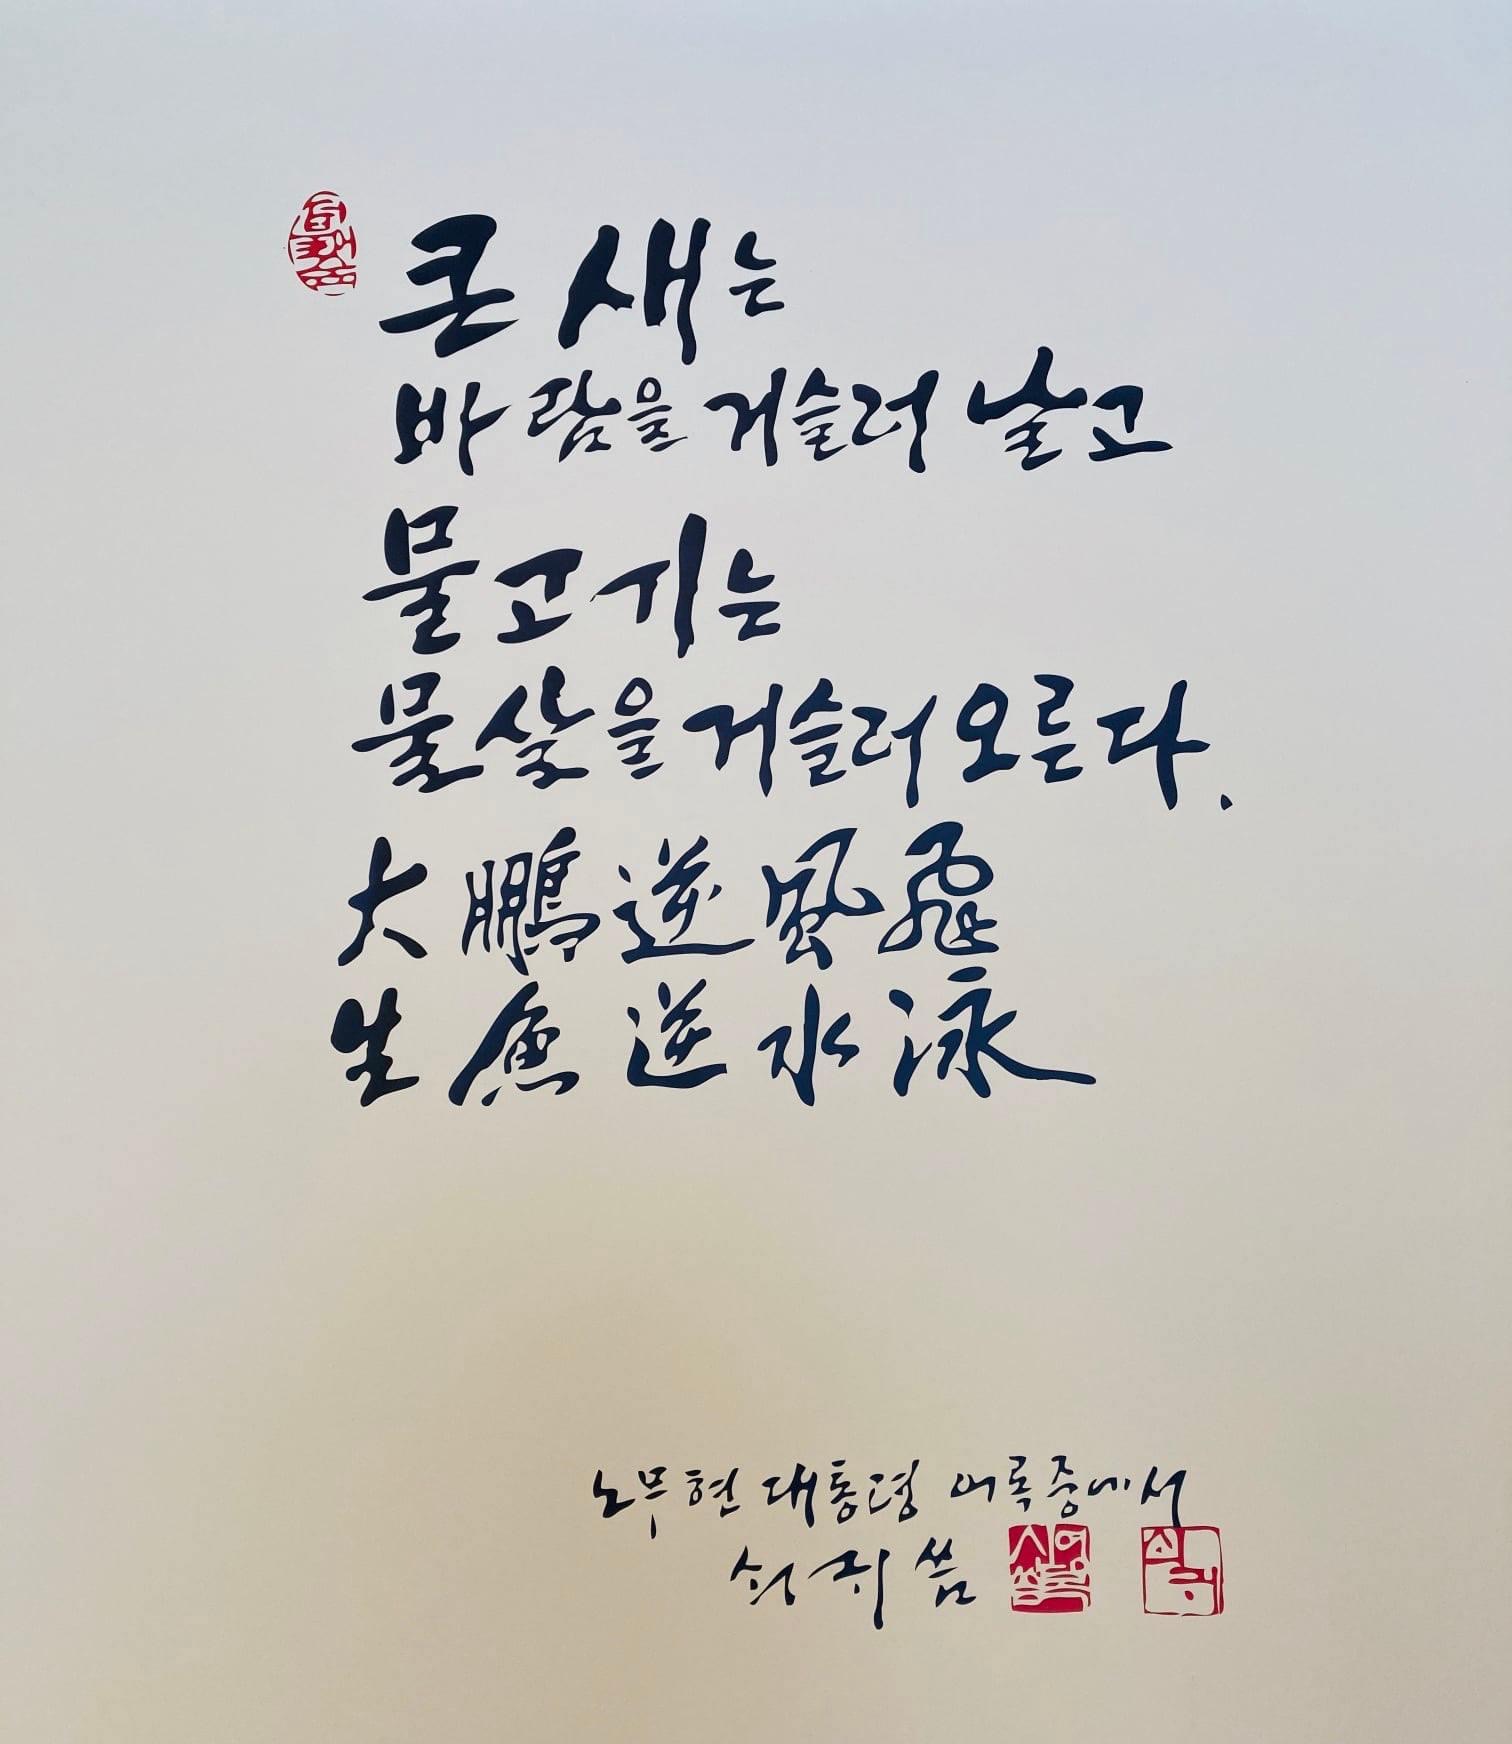 큰 새는
바람을 거슬러 날고
물고기는
물살을 거슬러 오른다.
大鵬逆風飛
生魚逆水泳
노무현 대통령 어록중에서
쇠귀 씀